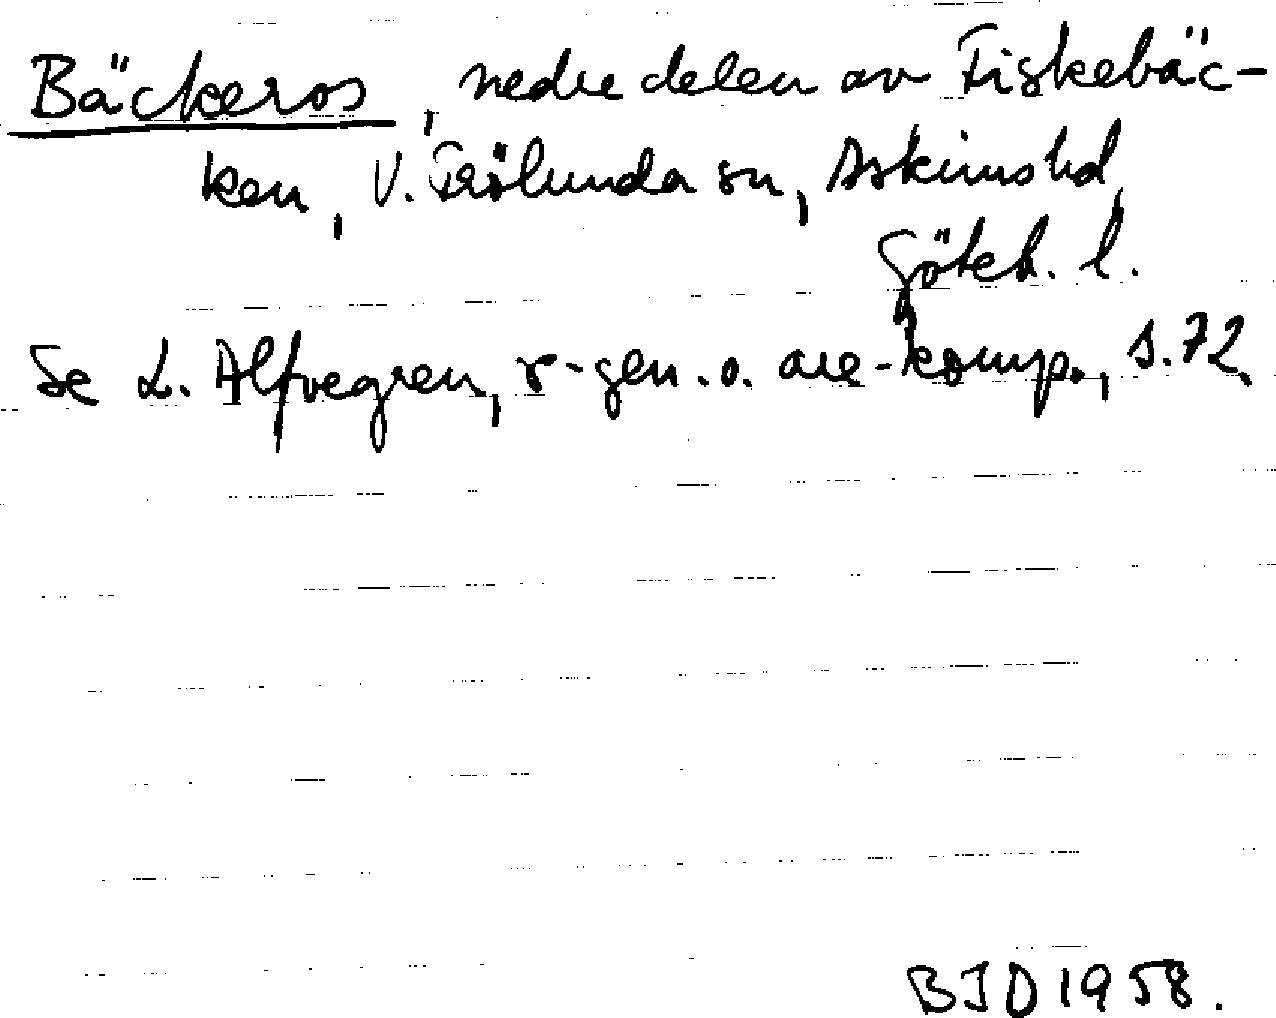 Bäckeros, nedre delen av Fiskebäc-
ken, V. Frölunda sn, Askims hd,
Göteb. l.
Se L. Alfvegren, r-gen. o. are-komp., s. 72.
BJD 1958.